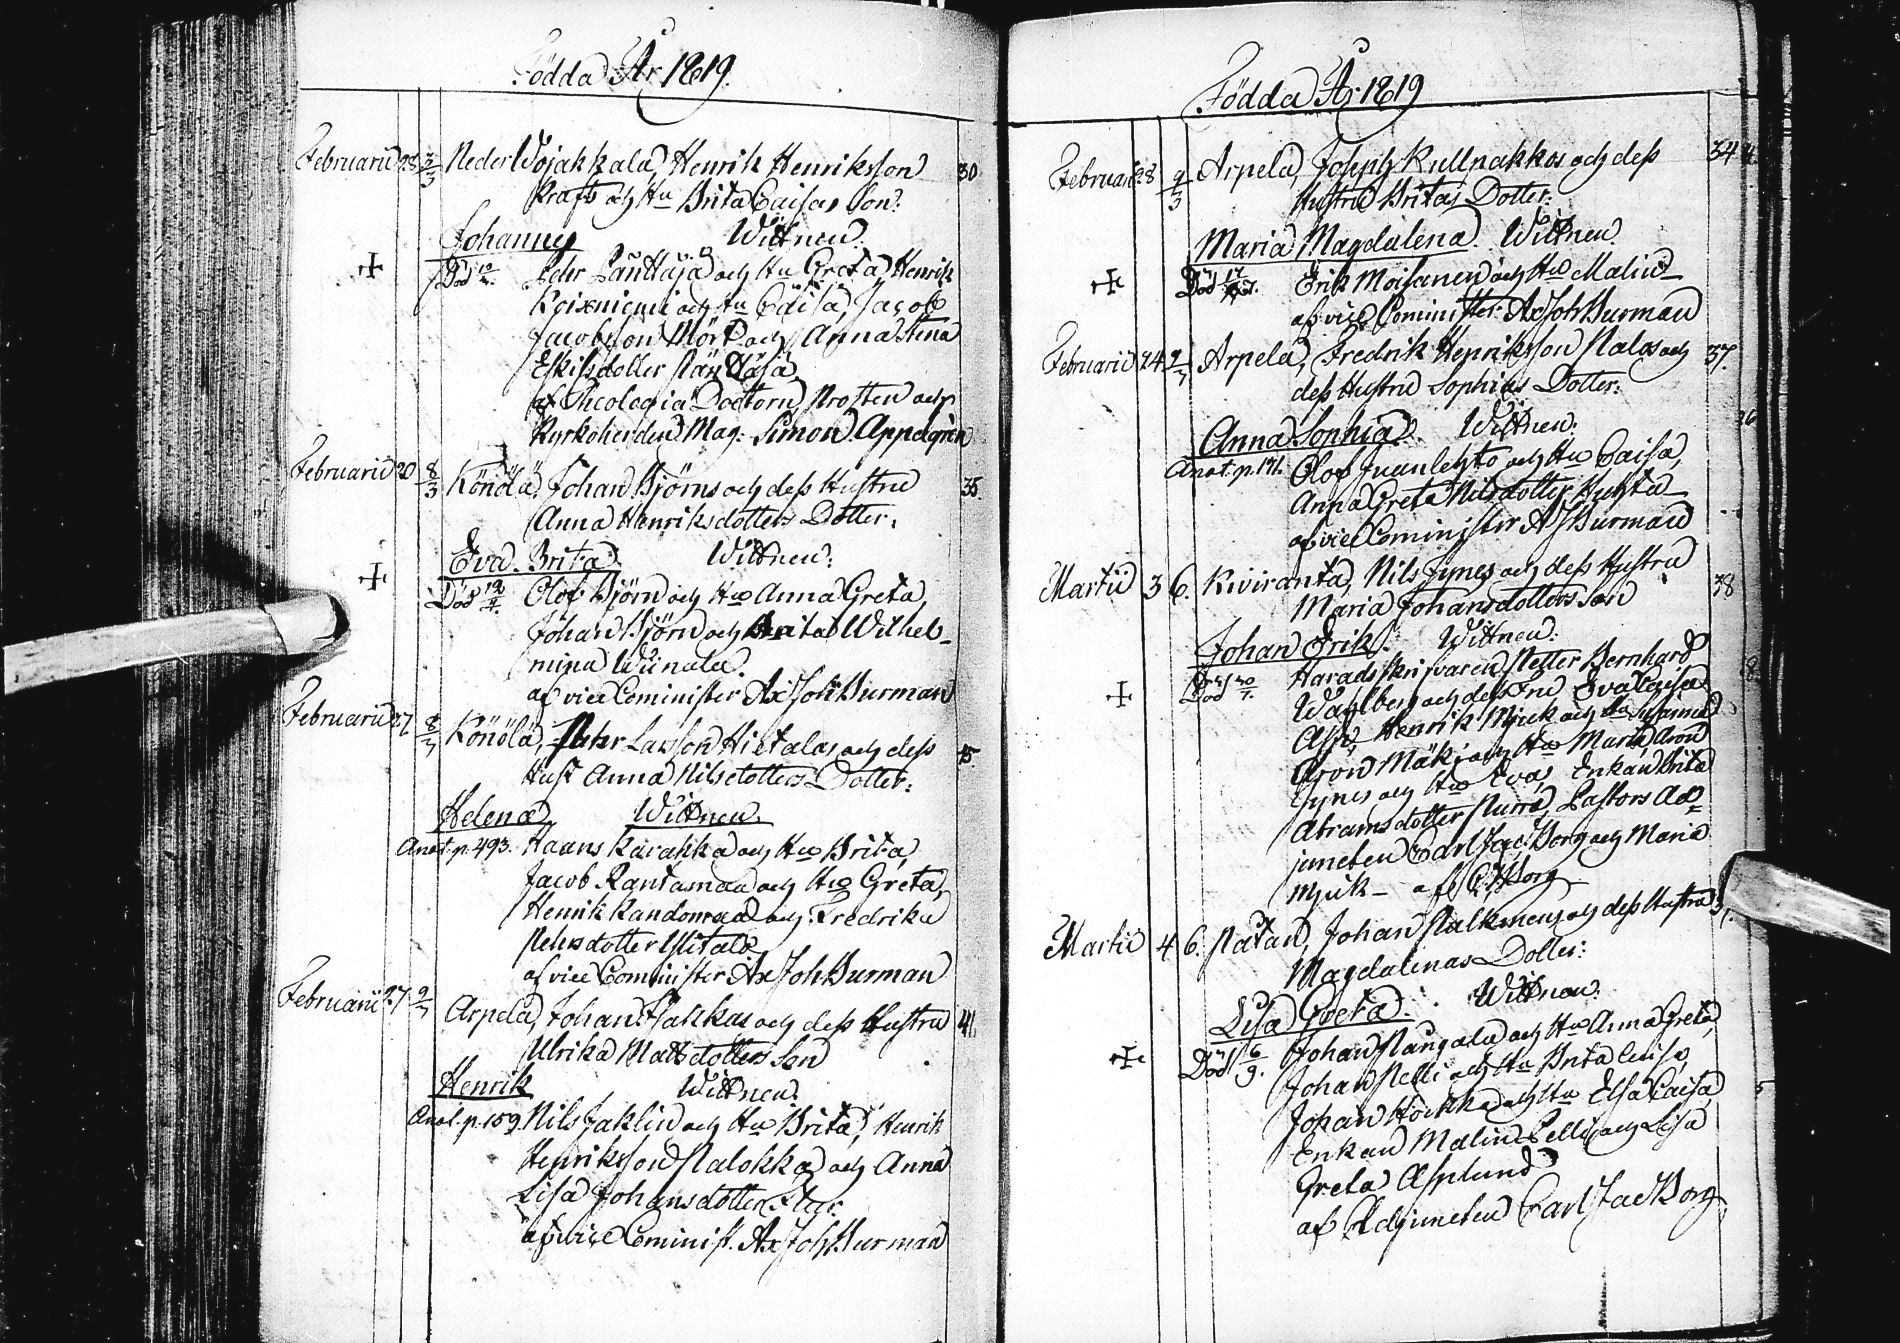 Födda År 1819.
Februarii 28 2/3 Neder Wojakkala, Henrik Henriksson 30
Krafts och Hu Brita Caisas Son:
Johannes Wittnen.
Död Pehr Lanttaja och Hu Greta, Henrik
och Hu Caisa, Jacob
Jacobsson Mört och Anna Stina
Eskilsdotter
af Theologiæ Doctorn Prosten och
Kyrkoherden Mag: Simon Appelgren
Februarii 20 8/3 Könölä, Johan Björns och dess Hustru 35.
Anna Henriksdotters Dotter.
Eva Brita. Wittnen:
Död Olof Björn och Hu Anna Greta,
Johan Björn och Brita Wilhel-
mina Wiinala.
af vice Cominister Ax Joh Burman
Februarii 27 8/3 Könölä, Pehr Larsson Hietalas och dess
Hust Anna Nilsdotters Dotter:
Helena Wittnen.
Anot. p. 493. Haans Karahka och Hu Brita,
Jacob Randamaa och Hu Greta,
Henrik Kandomaa och Fredrika
Pehrsdotter Hietala
af vice Cominister Ax Joh Burman
Februarii 27 9/3 Arpela, Johan Hakkas och dess Hustru 41.
Ulrika Matsdotters Son
Henrik Wittnen.
Anot. p. 159. Nils Jaklin och Hu Brita, Henrik
Henriksson Palokka och Anna
Lisa Johansdotter
af vice Cominist. Ax Joh Burman
Födda År 1819
Februari 28 9/3 Arpela, Joseph Kullpakkos och dess 34
Hustru Britas Dotter:
Maria Magdalena. Wittnen.
Död Erik Moisanen och Hu Malin
af vice Cominister Ax Joh Burman
Februarii 24 9/3 Arpela, Fredrik Henriksson Palos och 37.
dess Hustru Sophias Dotter:
Anna Sophia. Wittnen:
Anot. p. 191. Olof Juanlehto och Hu Caisa,
Anna Greta Nilsdotter Huhta
af vice Cominister A J Burman
Martii 3 6. Kiviranta, Nils Jynes och dess Hustru 38
Maria Johansdotters Son
Johan Erik. Wittnen:
Död Häradsskrifvaren Petter Bernhard
Wahlberg och dess Fru Eva Lovisa
Henrik Mjuk och Hu Susanna,
Aron Mäki och Hu Maria, Aron
Jynes och Hu Eva, Enkan Brita
Abramsdotter Purra, Pastors Ad-
juncten Carl Jac Borg och Maria
Mjuk — af C J Borg
Martii 4 6. Pätäri, Johan Palkmens och dess Hustru
Magdalenas Dotter:
Lisa Greta. Wittnen:
Död 6/9. Johan Nangala och Hu Anna Greta,
Johan Pelli och Hu Brita Caisa,
Johan Höckkä och Hu Elsa Caisa
Enkan Malin Pelli och Lisa
Greta Asplund
af Adjuncten Carl Jac Borg